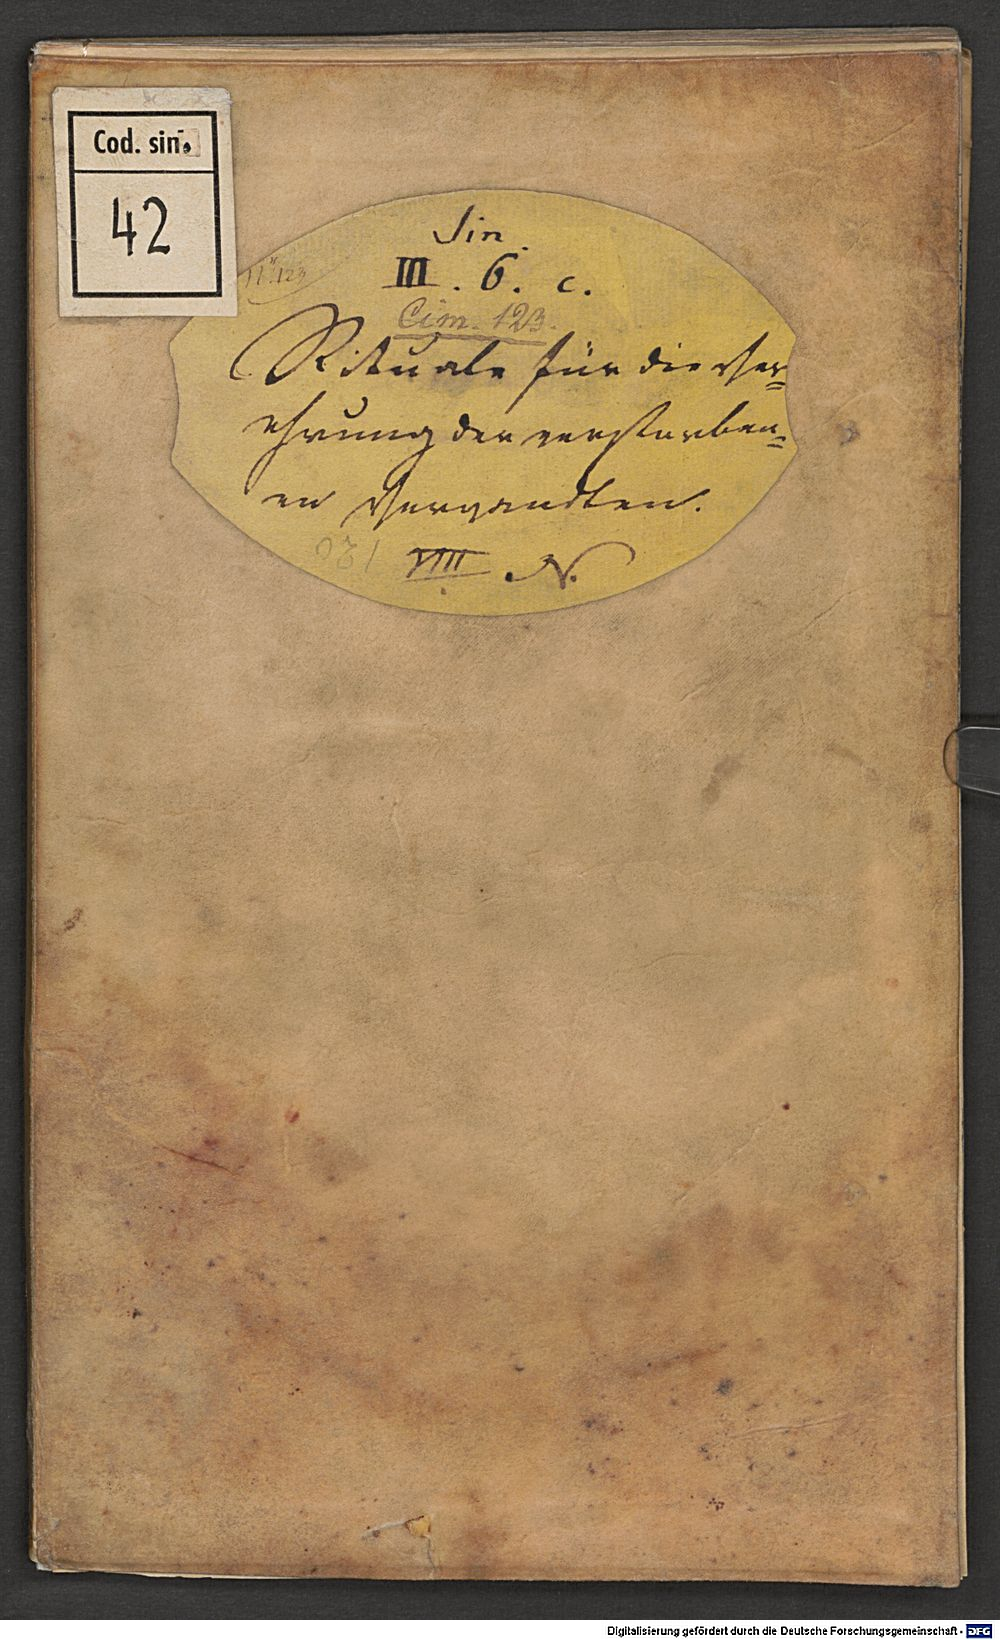 Cod. sin.
42
Sin.
III. 6. c.
N. 123
Cim. 123.
Rituale für die Ver=
ehrung der verstorben=
en Verwandten.
VIII N.
Digitalisierung gefördert durch die Deutsche Forschungsgemeinschaft - DFG